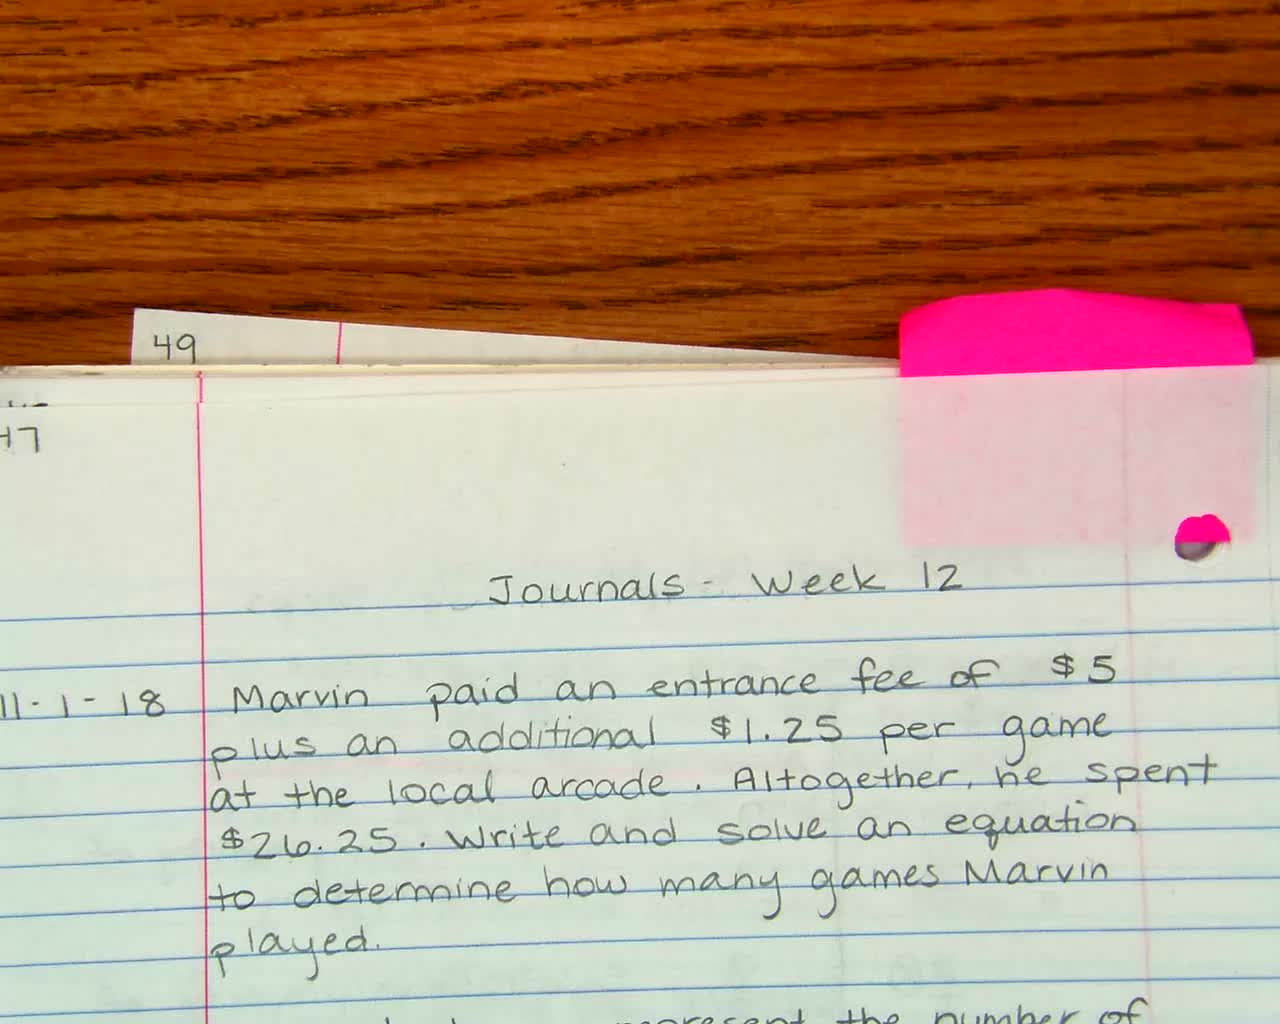 49
47
Journals - Week 12
11-1-18 Marvin paid an entrance fee of $5
plus an additional $1.25 per game
at the local arcade. Altogether, he spent
$26.25. Write and solve an equation
to determine how many games Marvin
played.
the number of